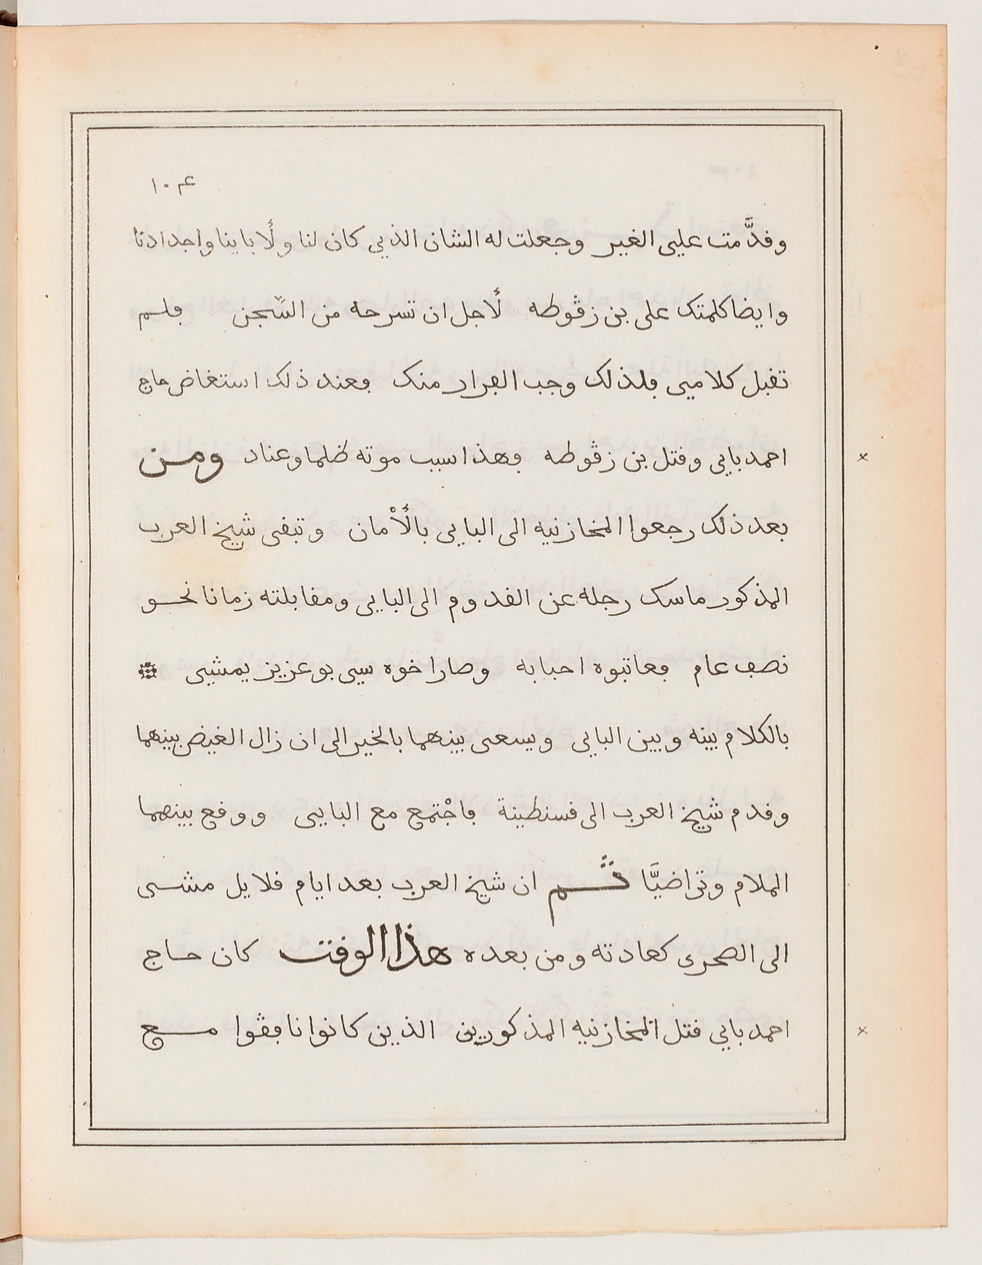 ١٠٤
وقدَّمت علي الغير وجعلت له الشان الذي كان لنا ولأباينا واجدادنا
وايضا كلمتك على بن زڤوطه لأجل ان تسرحه من السّجن فلم
تقبل كلامي فلذلك وجب الفرار منك فعند ذلك استغاض حاج
احمد باي وقتل بن زڤوطه فهذا سبب موته ظلما وعناد ومن
بعد ذلك رجعوا المخازنيه الى الباي بالأمان وتبقى شيخ العرب
المذكور ماسك رجله عن القدوم الى الباي ومقابلته زمانا نحو
نصف عام فعاتبوه احبابه وصار اخوه سي بوعزيز يمشي
بالكلام بينه وبين الباي ويسعى بينهما بالخير الى ان زال الغيض بينهما
وقدم شيخ العرب الى قسنطينة فاجْتمع مع الباي ووقع بينهما
الملام وتراضيَّا ثُمَّ ان شيخ العرب بعد ايام قلايل مشى
الى الصحرى كعادته ومن بعده هذا الوقت كان حاج
احمد باي قتل المخازنيه المذكورين الذين كانوا نافڤوا مع